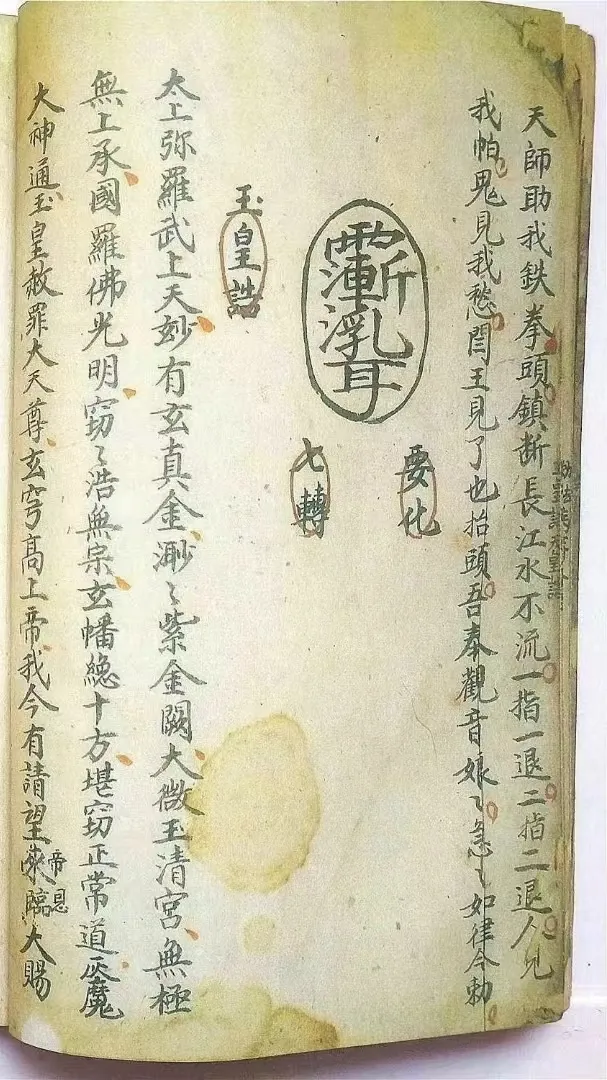 天師助我鉄拳頭鎮断長江水不流一指一退二指二退人見
我怕鬼見我愁閆王見了也抬頭吾奉觀音娘〻急〻如律令勅
要化
七轉
玉皇誥
太上弥羅武上天妙有玄真金渺〻紫金闕大微玉清宮無極
無上承國羅佛光明窈〻浩無宗玄幡總十方堪窈正常道灰魔
大神通玉皇赦罪大天尊玄穹髙上帝我今有請望來臨大賜
帝恩